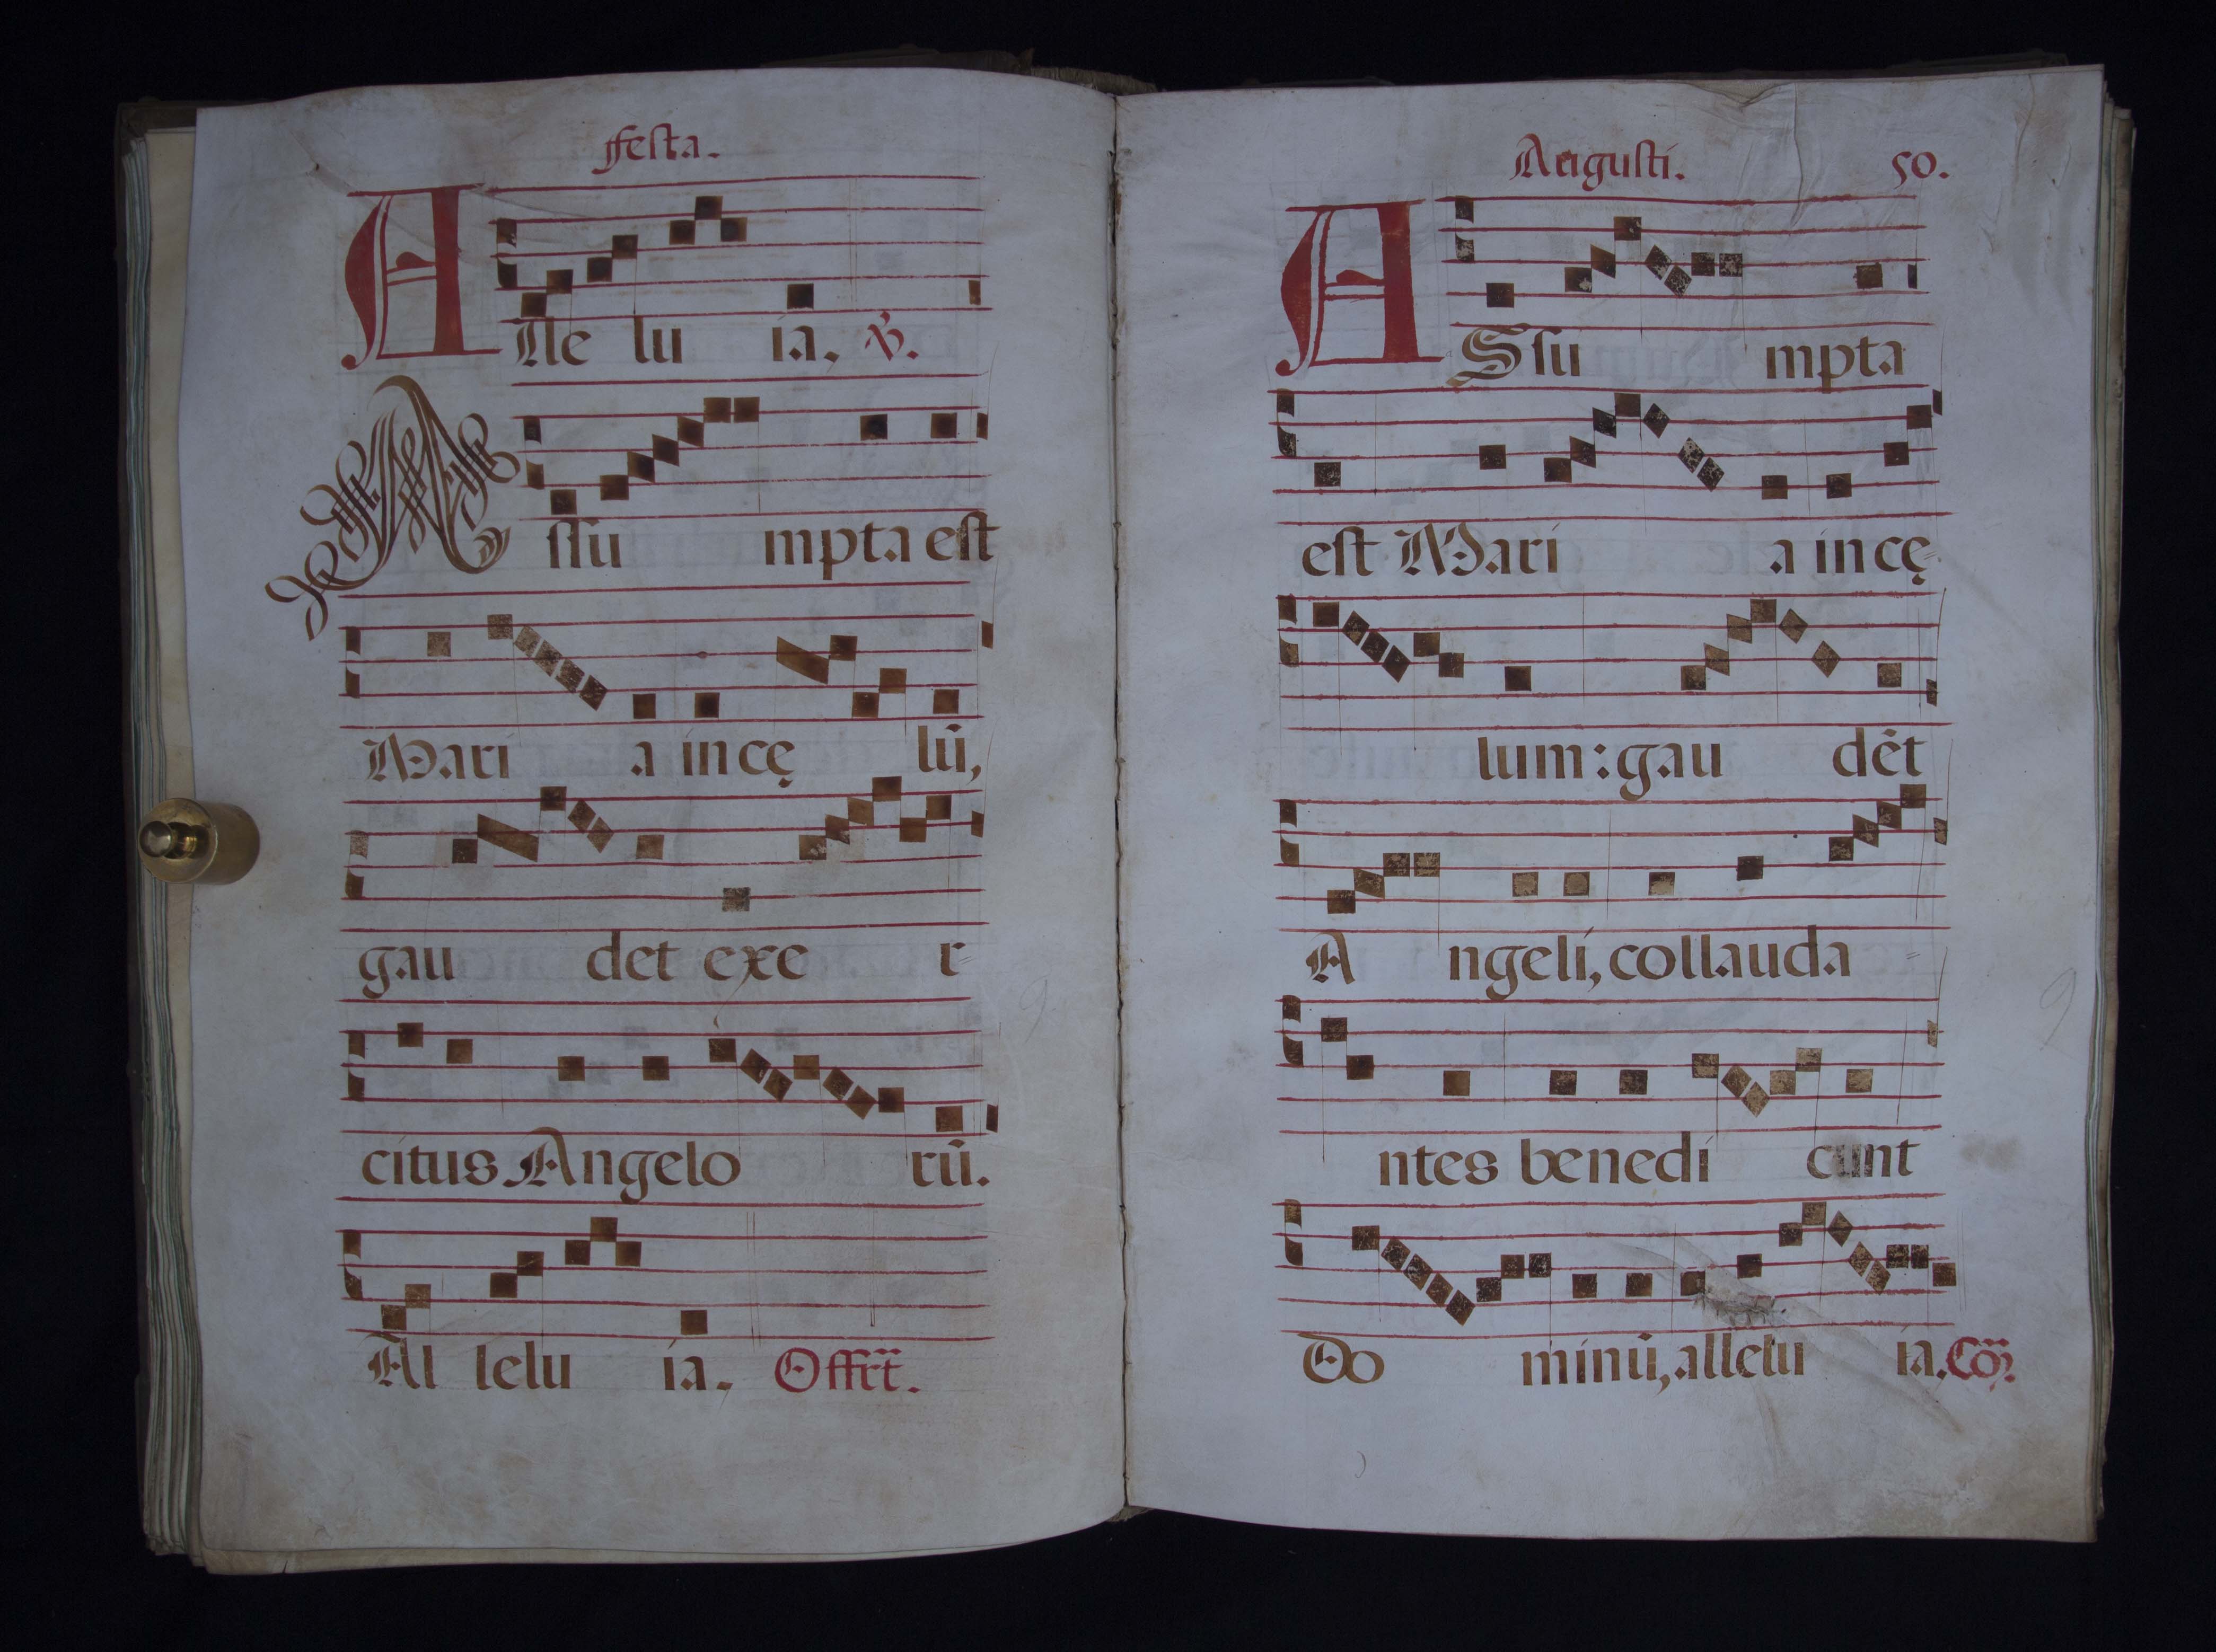 Festa.
Alle lu ia, ℣.
Assu mpta est
Mari a in cę lū,
gau det exe r=
citus Angelo rū.
Al lelu ia. Offrt.
Augusti. 50.
ASsu mpta
est Mari a in cę=
lum: gau dēt
A ngeli, collauda=
ntes benedi cunt
Do minū, allelu ia. Cō.